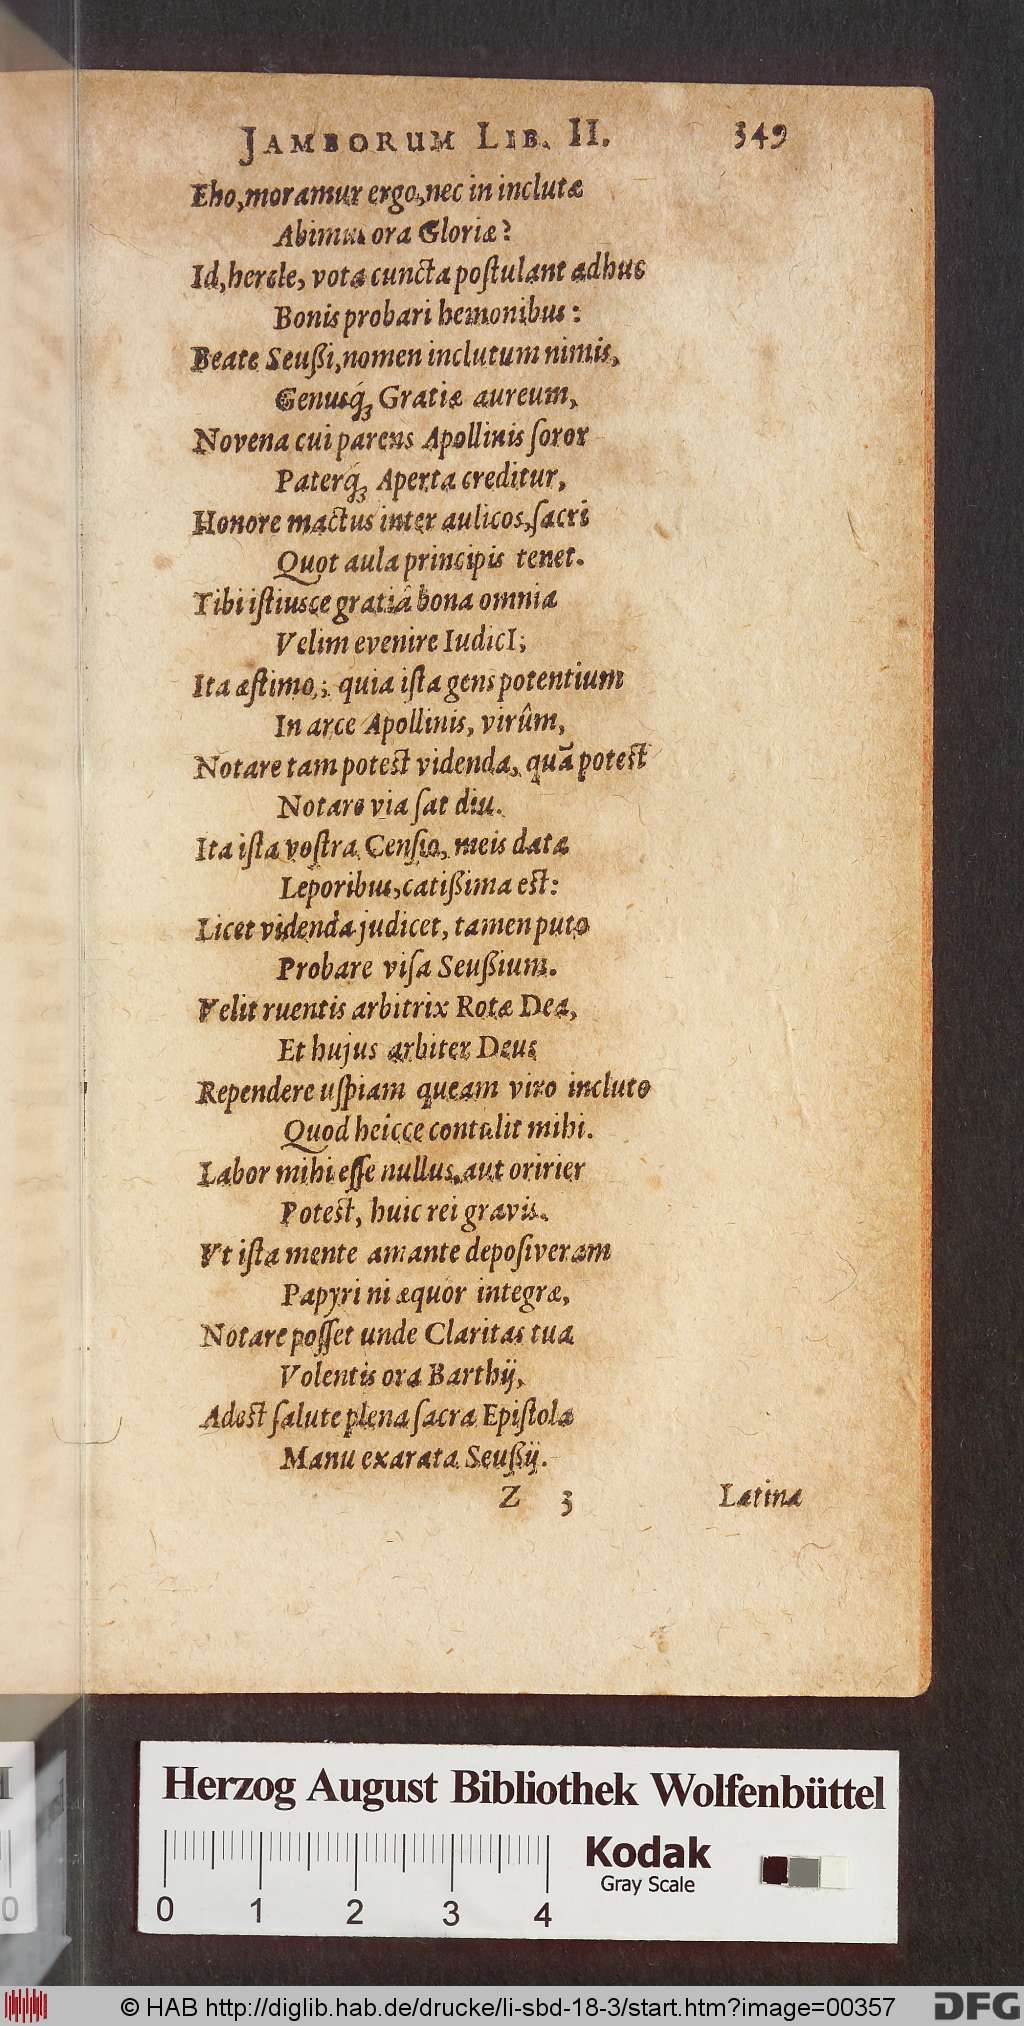 JAMBORUM LIB. II. 349
Eho, moramur ergo, nec in inclutæ
Abimus ora Gloriæ?
Id, hercle, vota cuncta postulant adhuc
Bonis probari hemonibus:
Beate Seußi, nomen inclutum nimis,
Genusq́ꝫ Gratiæ aureum,
Novena cui parens Apollinis soror
Paterq́ꝫ Aperta creditur,
Honore mactus inter aulicos, sacri
Quot aula principis tenet.
Tibi istiusce gratiâ bona omnia
Velim evenire IudicI;
Ita æstimo; quia ista gens potentium
In arce Apollinis, virûm,
Notare tam potest videnda, quã potest
Notare via sat diu.
Ita ista vostra Censio, meis data
Leporibus, catißima est:
Licet videnda judicet, tamen puto
Probare visa Seußium.
Velit ruentis arbitrix Rotæ Dea,
Et hujus arbiter Deus
Rependere uspiam queam viro incluto
Quod heicce contulit mihi.
Labor mihi esse nullus, aut oririer
Potest, huic rei gravis.
Vt ista mente amante deposiveram
Papyri ni æquor integræ,
Notare posset unde Claritas tua
Volentis ora Barthij,
Adest salute plena sacra Epistola
Manu exarata Seußij.
Z 3 Latina
Herzog August Bibliothek Wolfenbüttel
Kodak
Gray Scale
0 1 2 3 4
© HAB http://diglib.hab.de/drucke/li-sbd-18-3/start.htm?image=00357
DFG